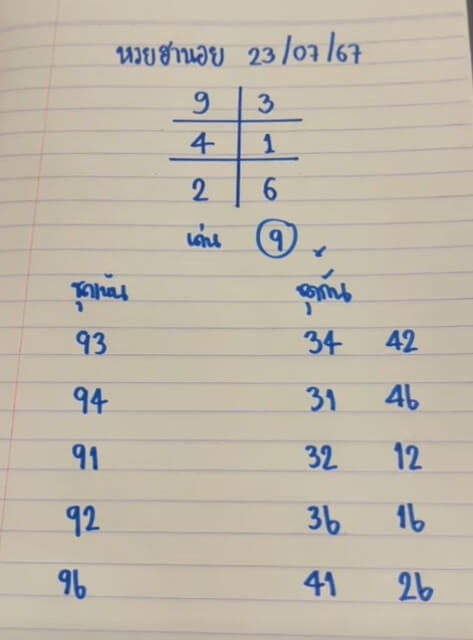 หวยฮานอย 23/07/67
9 3
4 1
2 6
เด่น 9
ชุดเน้น ชุดกัน
93 34 42
94 31 46
91 32 12
92 36 16
96 41 26